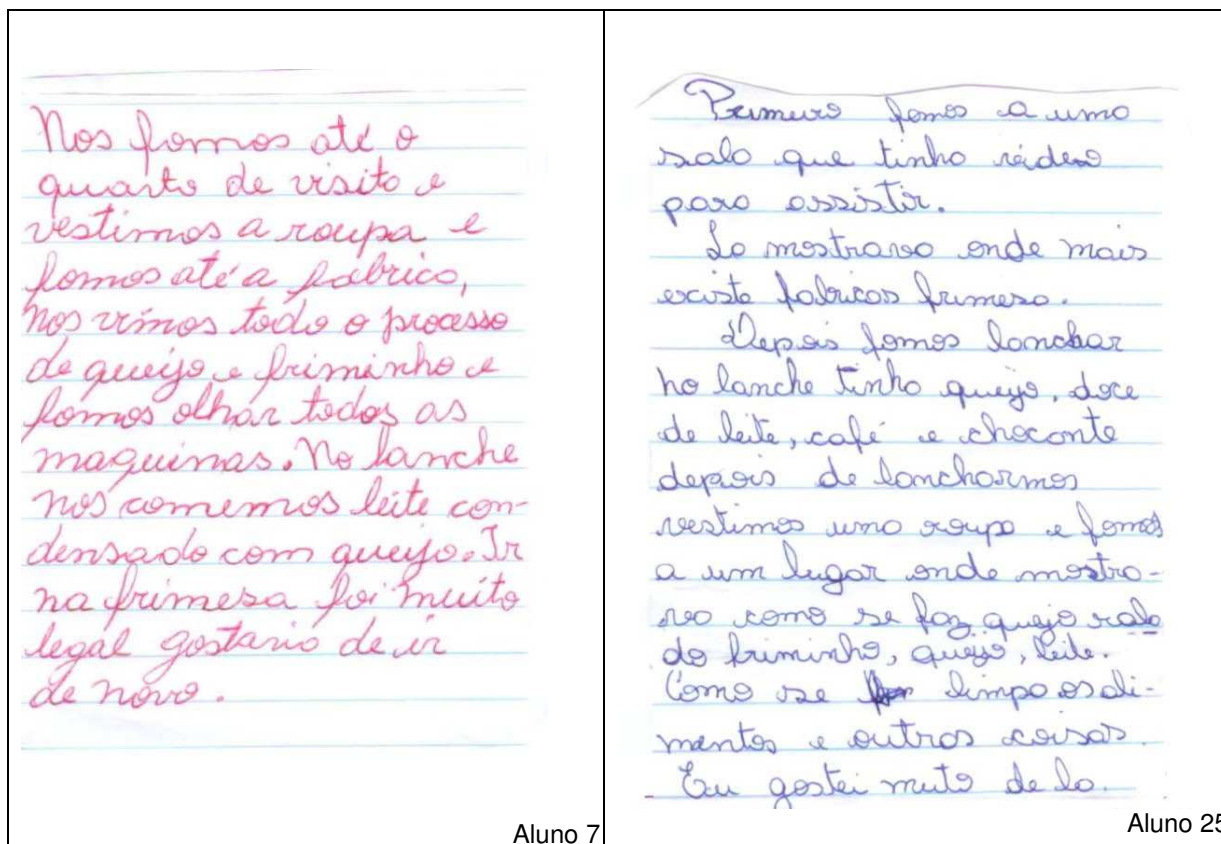 Nos fomos até o
quarto de visita e
vestimos a roupa e
fomos até a fabrica,
nos vimos todo o processo
de queijo e friminho e
fomos olhar todos as
maquinas. No lanche
nos comemos leite con-
densado com queijo. Ir
na frimesa foi muito
legal gostaria de ir
de novo.
Aluno 7
Primeiro fomos a uma
sala que tinha vídeo
para assistir.
La mostrava onde mais
existe fabricas frimesa.
Depois fomos lanchar
no lanche tinha queijo, doce
de leite, café e choconte
depois de lancharmos
vestimos uma roupa e fomos
a um lugar onde mostra-
va como se faz quejo rala
do friminho, queijo, leite.
Como se limpa os ali-
mentos e outras coisas.
Eu gostei muto de la.
Aluno 25